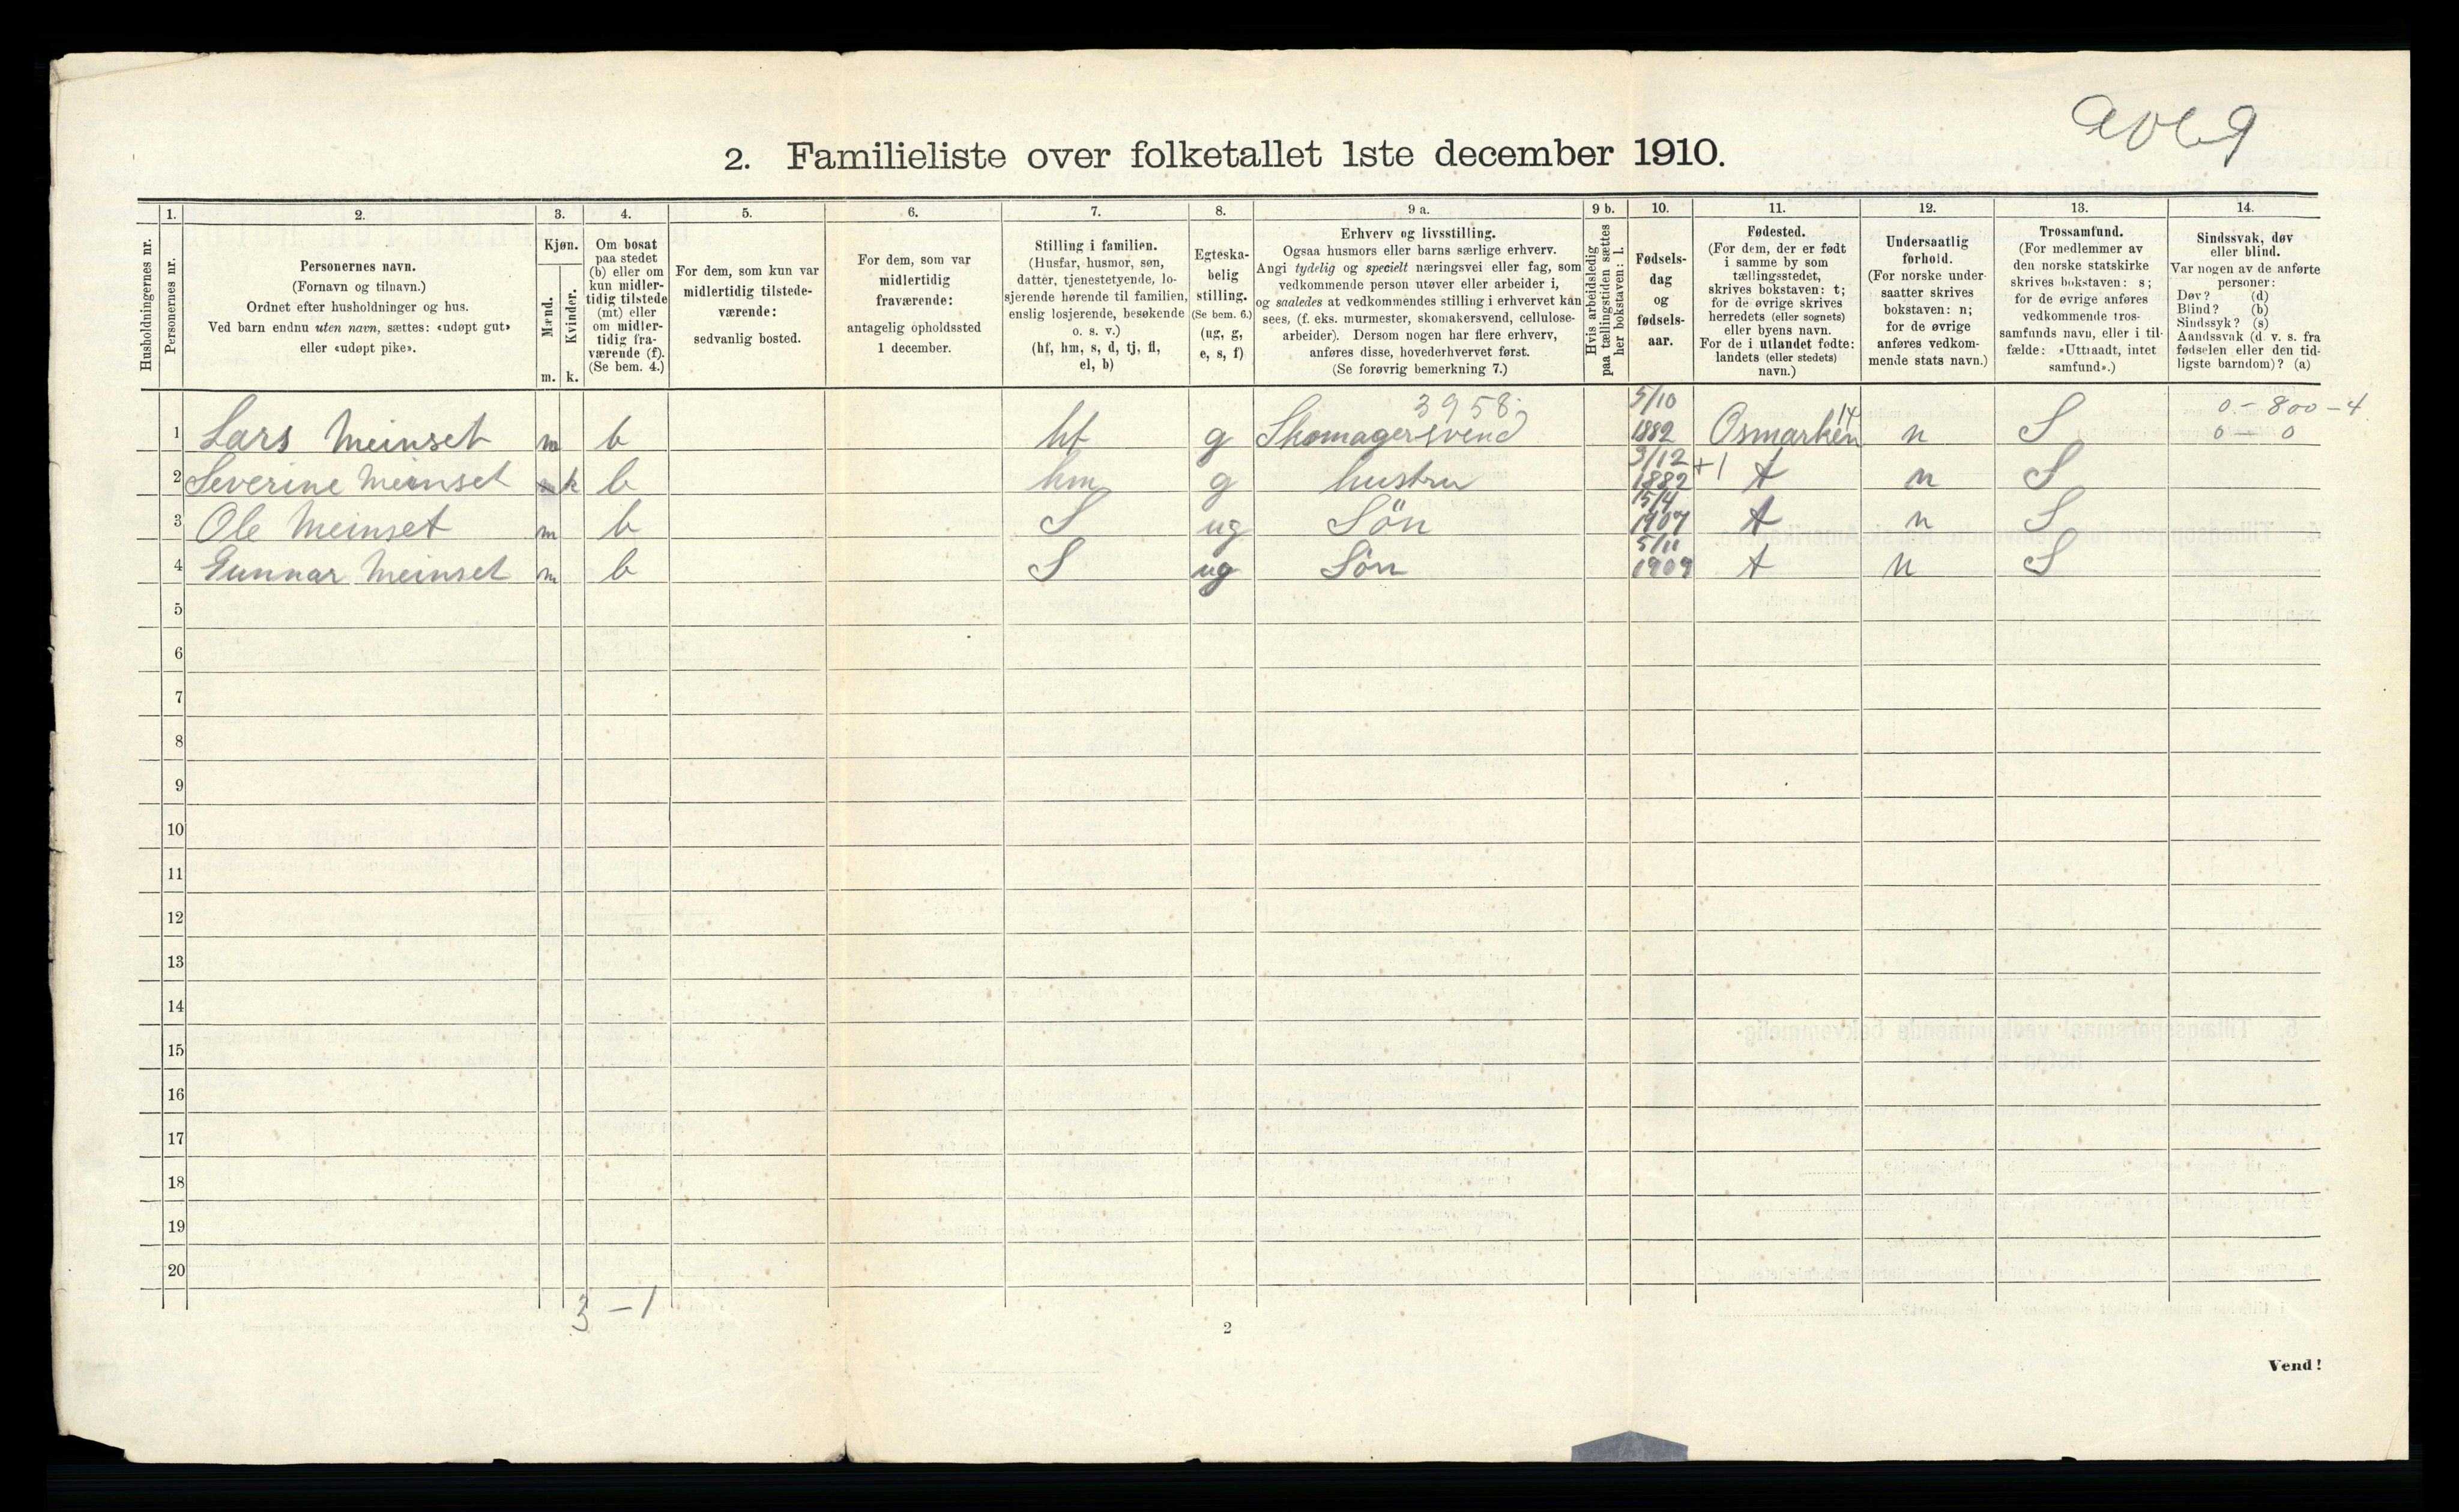 2. Familieliste over folketallet 1ste december 1910.
Husholdningernes nr.
1. Personernes nr.
2. Personernes navn.
(Fornavn og tilnavn.)
Ordnet efter husholdninger og hus.
Ved barn endnu uten navn, sættes: «udøpt gut»
eller «udøpt pike».
3. Kjøn.
Mænd. m.
Kvinder. k.
4. Om bosat
paa stedet
(b) eller om
kun midler-
tidig tilstede
(mt) eller
om midler-
tidig fra-
værende (f).
(Se bem. 4.)
5. For dem, som kun var
midlertidig tilstede-
værende:
sedvanlig bosted.
6. For dem, som var
midlertidig
fraværende:
antagelig opholdssted
1 december.
7. Stilling i familien.
(Husfar, husmor, søn,
datter, tjenestetyende, lo-
sjerende hørende til familien,
enslig losjerende, besøkende
o. s. v.)
(hf, hm, s, d, tj, fl,
el, b)
8. Egteska-
belig
stilling.
(Se bem. 6.)
(ug, g,
e, s, f)
9 a. Erhverv og livsstilling.
Ogsaa husmors eller barns særlige erhverv.
Angi tydelig og specielt næringsvei eller fag, som
vedkommende person utøver eller arbeider i,
og saaledes at vedkommendes stilling i erhvervet kan
sees, (f. eks. murmester, skomakersvend, cellulose-
arbeider). Dersom nogen har flere erhverv,
anføres disse, hovederhvervet først.
(Se forøvrig bemerkning 7.)
9 b. Hvis arbeidsledig
paa tællingstiden sættes
her bokstaven: l.
10. Fødsels-
dag
og
fødsels-
aar.
11. Fødested.
(For dem, der er født
i samme by som
tællingsstedet,
skrives bokstaven: t;
for de øvrige skrives
herredets (eller sognets)
eller byens navn.
For de i utlandet fødte:
landets (eller stedets)
navn.)
12. Undersaatlig
forhold.
(For norske under-
saatter skrives
bokstaven: n;
for de øvrige
anføres vedkom-
mende stats navn.)
13. Trossamfund.
(For medlemmer av
den norske statskirke
skrives bokstaven: s;
for de øvrige anføres
vedkommende tros-
samfunds navn, eller i til-
fælde: «Uttraadt, intet
samfund».)
14. Sindssvak, døv
eller blind.
Var nogen av de anførte
personer:
Døv? (d)
Blind? (b)
Sindssyk? (s)
Aandssvak (d. v. s. fra
fødselen eller den tid-
ligste barndom)? (a)
3958 5/10 14 0 - 800 - 4
1 Lars Meinset m b hf g Skomagersvend 1882 Osmarken n S 0 - 0
3/12 +1
2 Severine Meinset m k b hm g hustru 1882 t n S
15/4
3 Ole Meinset m b S ug Sön 1907 t n S
5/11
4 Gunnar Meinset m b S ug Sön 1909 t n S
5
6
7
8
9
10
11
12
13
14
15
16
17
18
19
20
3 - 1
2
Vend!